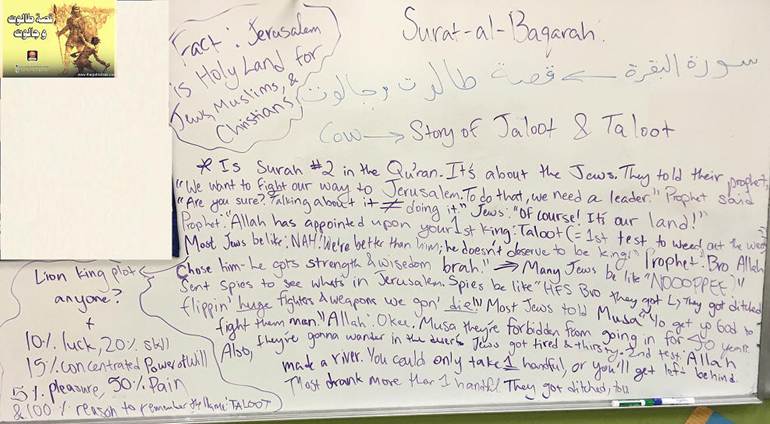 قصة طالوت
و جالوت
Fact: Jerusalem
is Holy Land for
Jews, Muslims, &
Christians
Surat-al-Baqarah
سورة البقرة ← قصة طالوت وجالوت
Cow → Story of Jaloot & Taloot
* Is Surah #2 in the Qu'ran. It's about the Jews. They told their prophet,
"We want to fight our way to Jerusalem. To do that, we need a leader." Prophet said
"Are you sure? Talking about it ≠ doing it." Jews: "Of course! It's our land!"
Prophet: "Allah has appointed upon your 1st king: Taloot (= 1st test to weed out the weed
Most Jews be like: NAH! We're better than him; he doesn't observe to be king!" Prophet: "Bro Allah
Chose him- he gots strength & wisedom brah." → Many Jews be like "NOOOPPEE"
Sent spies to see whats in Jerusalem. Spies be like "Bro they got They got ditched
flippin' huge fighters & weapons we gon' die!" Most Jews told Musa "Yo get yo God to
fight them man." Allah: Okee. Musa they're forbidden from going in for 40 years.
Also, they're gonna wander in the Jews got tired & thirsty. 2nd test: Allah
made a river. You could only take 1 handful, or you'll get left behind.
Most drank more than 1 handful. They got ditched, too
Lion king plot
anyone?
+
10% luck, 20% skill
15% concentrated Power of Will
5% pleasure, 50% Pain
& 100% reason to remember the Name: TALOOT